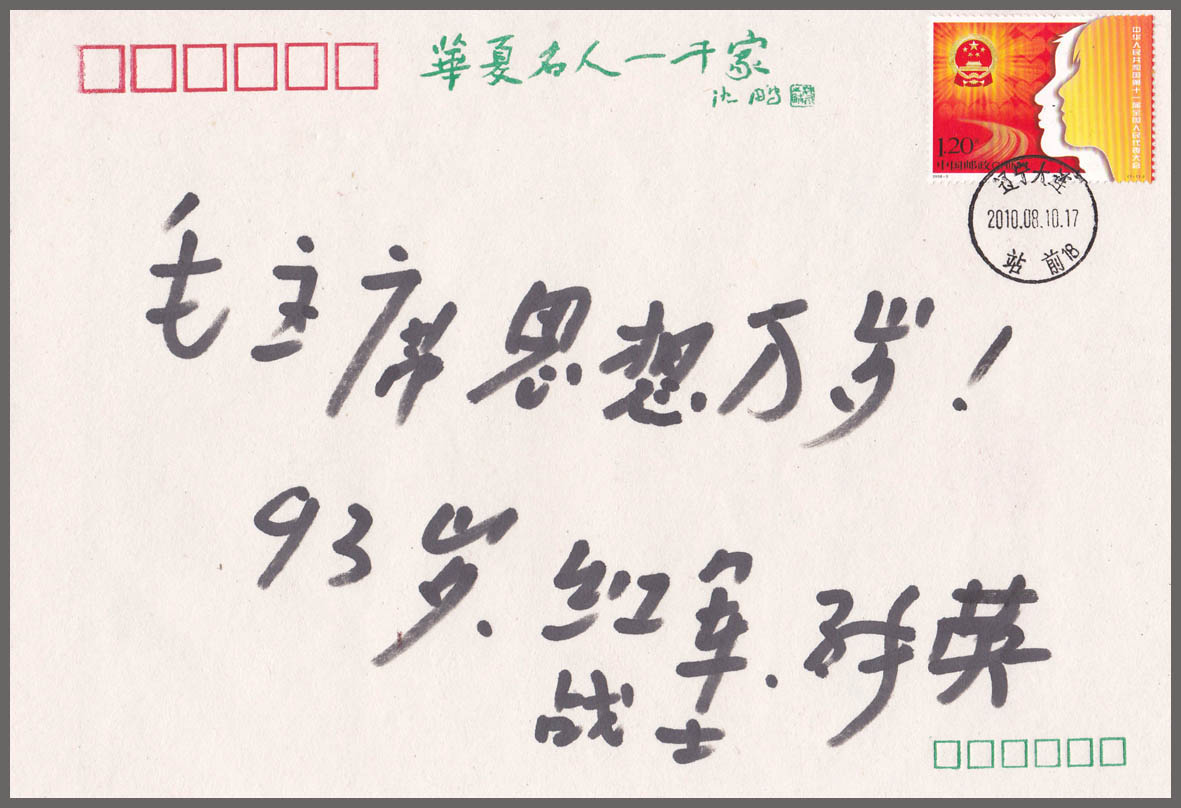 華夏名人一千家
沈鹏
中华人民共和国第十一届全国人民代表大会
1.20元
中国邮政 CHINA
2008-5
辽宁大连
2010.08.10.17
站前18
毛主席思想万岁！
93岁、红军、孙英
战士